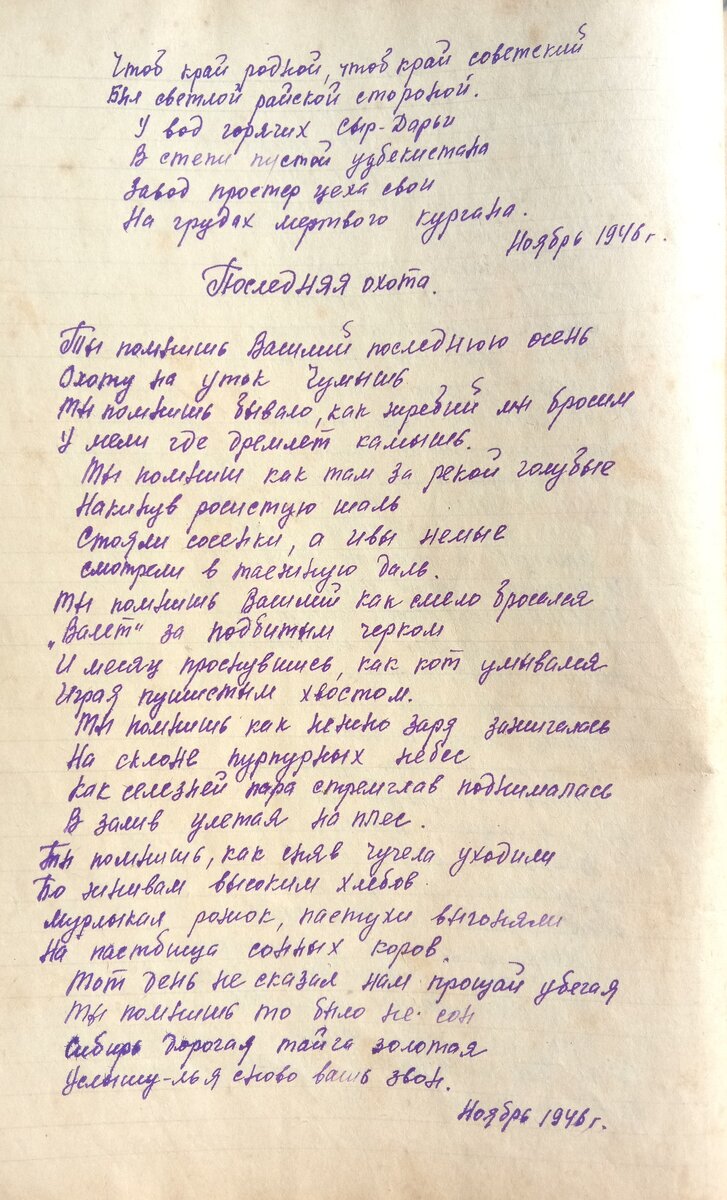 Чтоб край родной, чтоб край советский
Был светлой райской стороной.
У вод горячих Сыр-Дарьи
В степи пустой узбекистана
Завод простер цеха свои
На грудах мертвого кургана.
Ноябрь 1946 г.
Последняя охота.
Ты помнишь Василий последнюю осень
Охоту на уток Чумышь
Ты помнишь бывало, как жребий мы бросим
У мели где дремлет камышь.
Ты помниш как там за рекой голубые
Накинув росистую шаль
Стояли сосенки, а ивы немые
смотрели в таежную даль.
Ты помнишь Василий как смело бросался
"Валет" за подбитым черком
И месяц проснувшись, как кот умывался
Играя пушистым хвостом.
Ты помнишь как нежно заря зажигалась
На склоне пурпурных небес
Как селезней пара стремглав поднималась
В залив улетая на плес.
Ты помнишь, как сняв чучела уходили
По жнивам высоким хлебов
Мурлыкая рожок, пастухи выгоняли
На пастбища сонных коров.
Тот день не сказал нам прощай убегая
Ты помнишь то было не сон
Сибирь дорогая тайга золотая
Услышу-ль я сново вашь звон.
Ноябрь 1946 г.